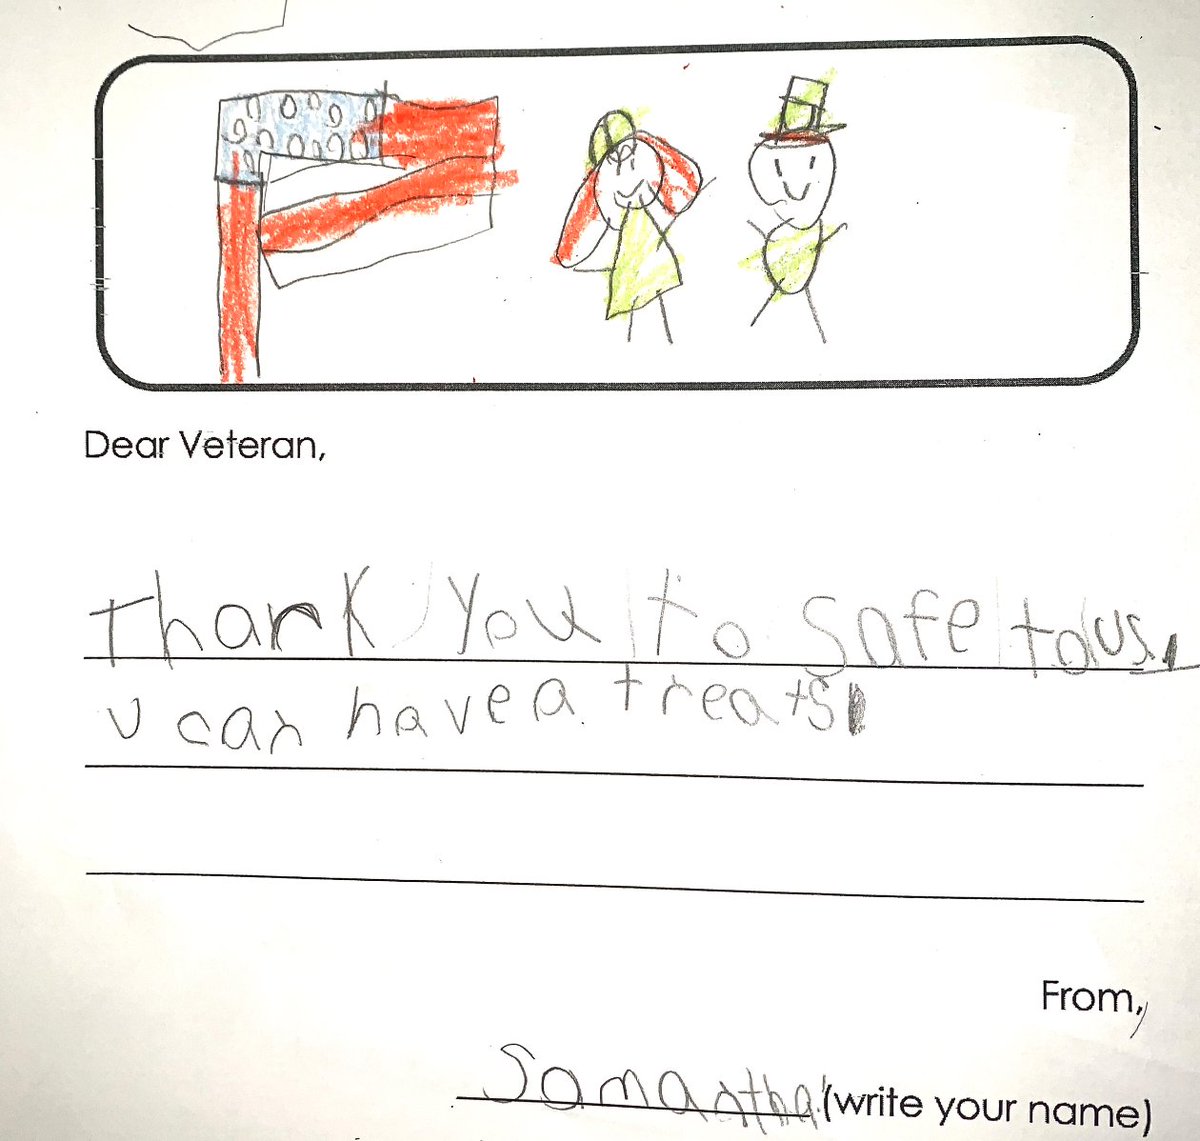 Dear Veteran,
Thank you to Safe to us.
U can have a treats
From,
Samantha (write your name)